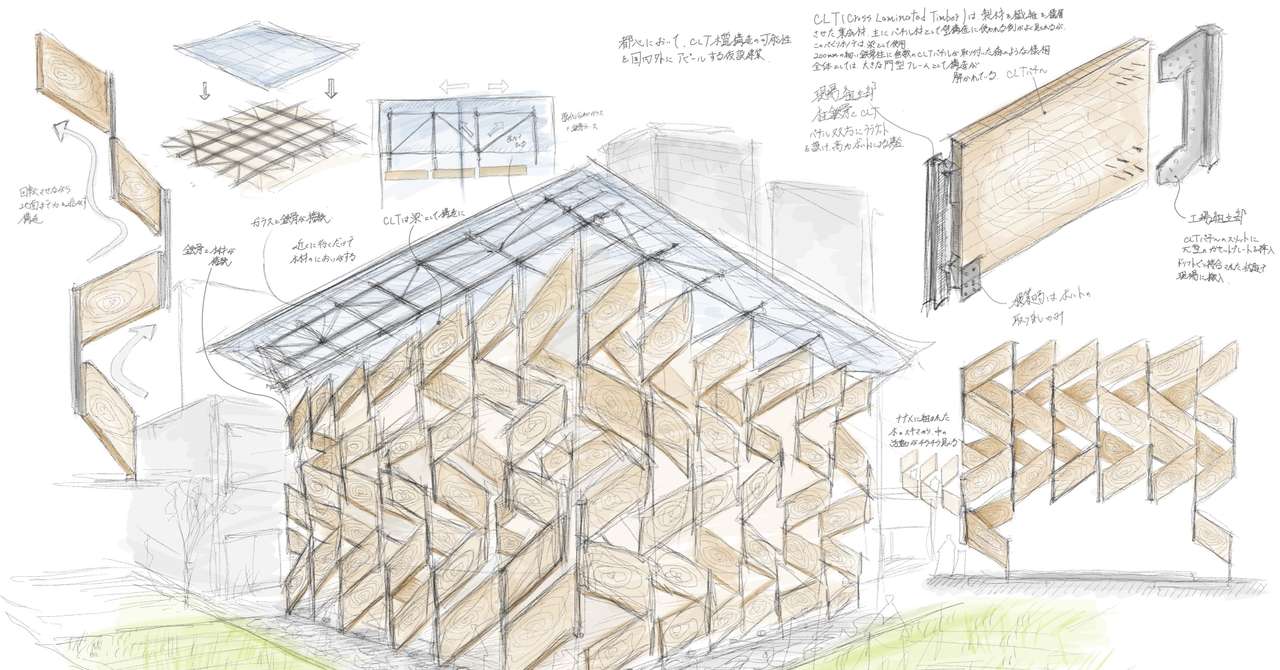 都心において、CLT木構造の可能性
を国内外にアピールする仮設建築
CLT(Cross Laminated Timber)は製材を繊維を積層
させた集成材。主にパネル材として壁構造に使われる例がよく見られるが、
このパビリオンでは梁として使用
200mmの細い鉄骨柱に無数のCLTパネルが取り付いた森のような様相
全体としては大きな門型フレームとして構造が
解かれている。
CLTパネル
現場組立部
柱鉄骨とCLT
パネル双方にブラケット
を設け、高力ボルトによる接合
工場組立部
CLTパネルのスリットに
大型のガセットプレートを挿入
ドリフトピン接合された状態で
現場に搬入
ボルトの
取り外しのみ
回転させながら
地面まで力を流す
構造
鉄骨と木材が
接続
ガラスと鉄骨が接続
近くに行くだけで
木材のにおいがする
CLTは梁として構造に
ナナメに組まれた
木のスキマから中の
活動がチラチラ見える